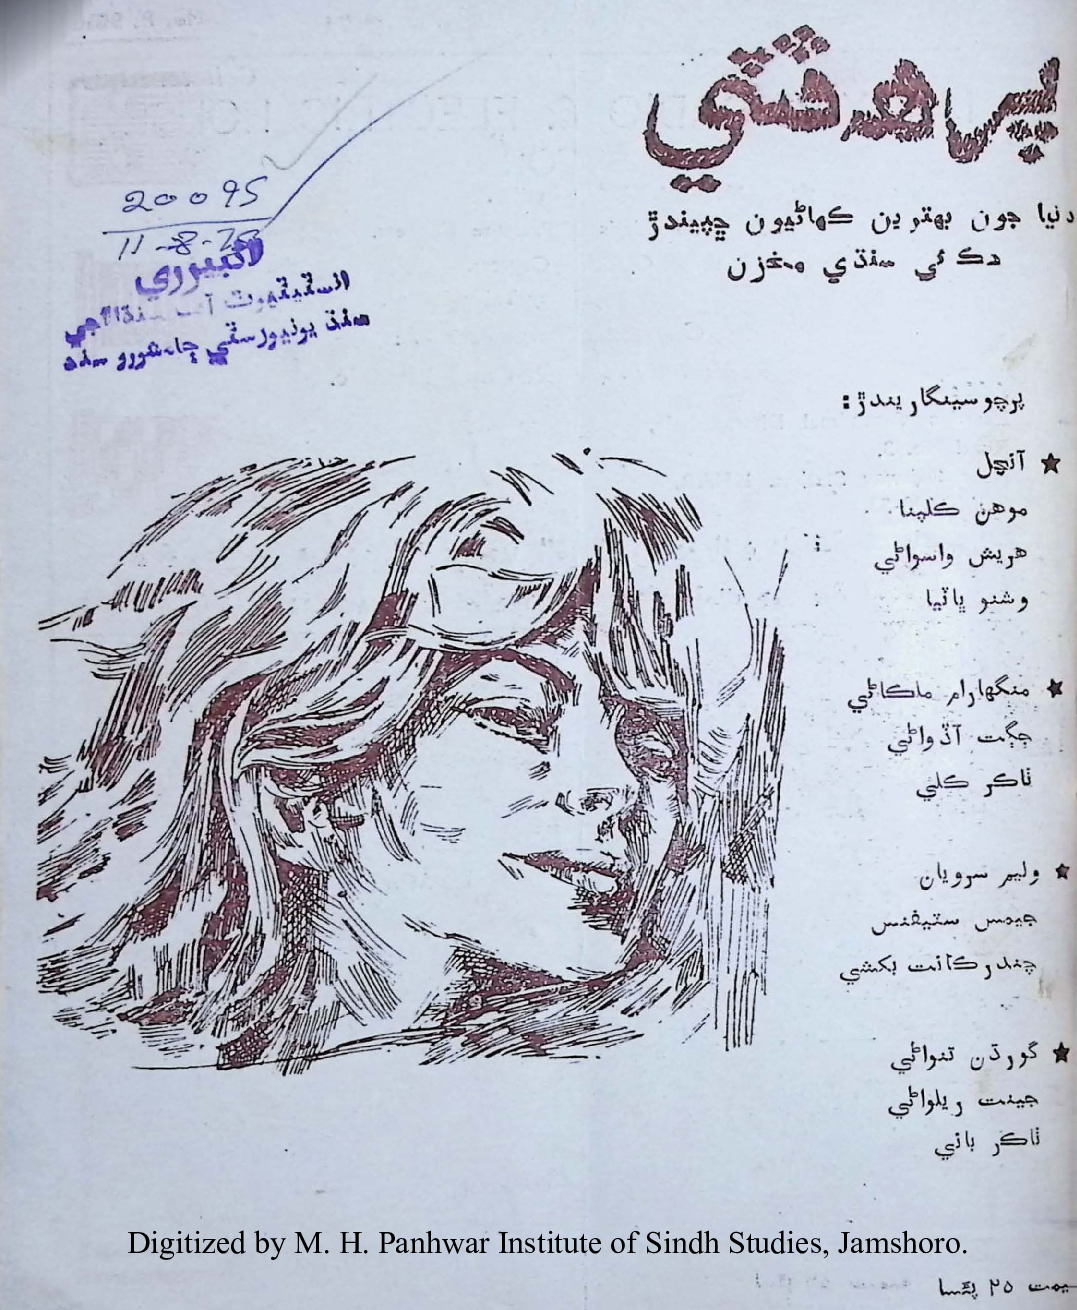 پرهڦٽي
دنيا جون بهترين ڪهاڻيون ڇپيندڙ
هڪ ئي سنڌي مخزن
20095
11-8-78
لائبريري
انسٽيٽيوٽ آف سنڌالاجي
سنڌ يونيورسٽي ڄامشورو سنڌ
پرچو سينگاريندڙ:
★ آنچل
موهن ڪلپنا
هريش واسواڻي
وشنو ڀاٽيا
★ منگهارام ملڪاڻي
جڳت آڏواڻي
ٺاڪر ڪلي
★ وليم سرويان
جيمس سٽيفنس
چندرڪانت بکشي
★ گورڌن تنواڻي
جينت ريلواڻي
ٺاڪر
Digitized by M. H. Panhwar Institute of Sindh Studies, Jamshoro.
قيمت ٢٥ پئسا